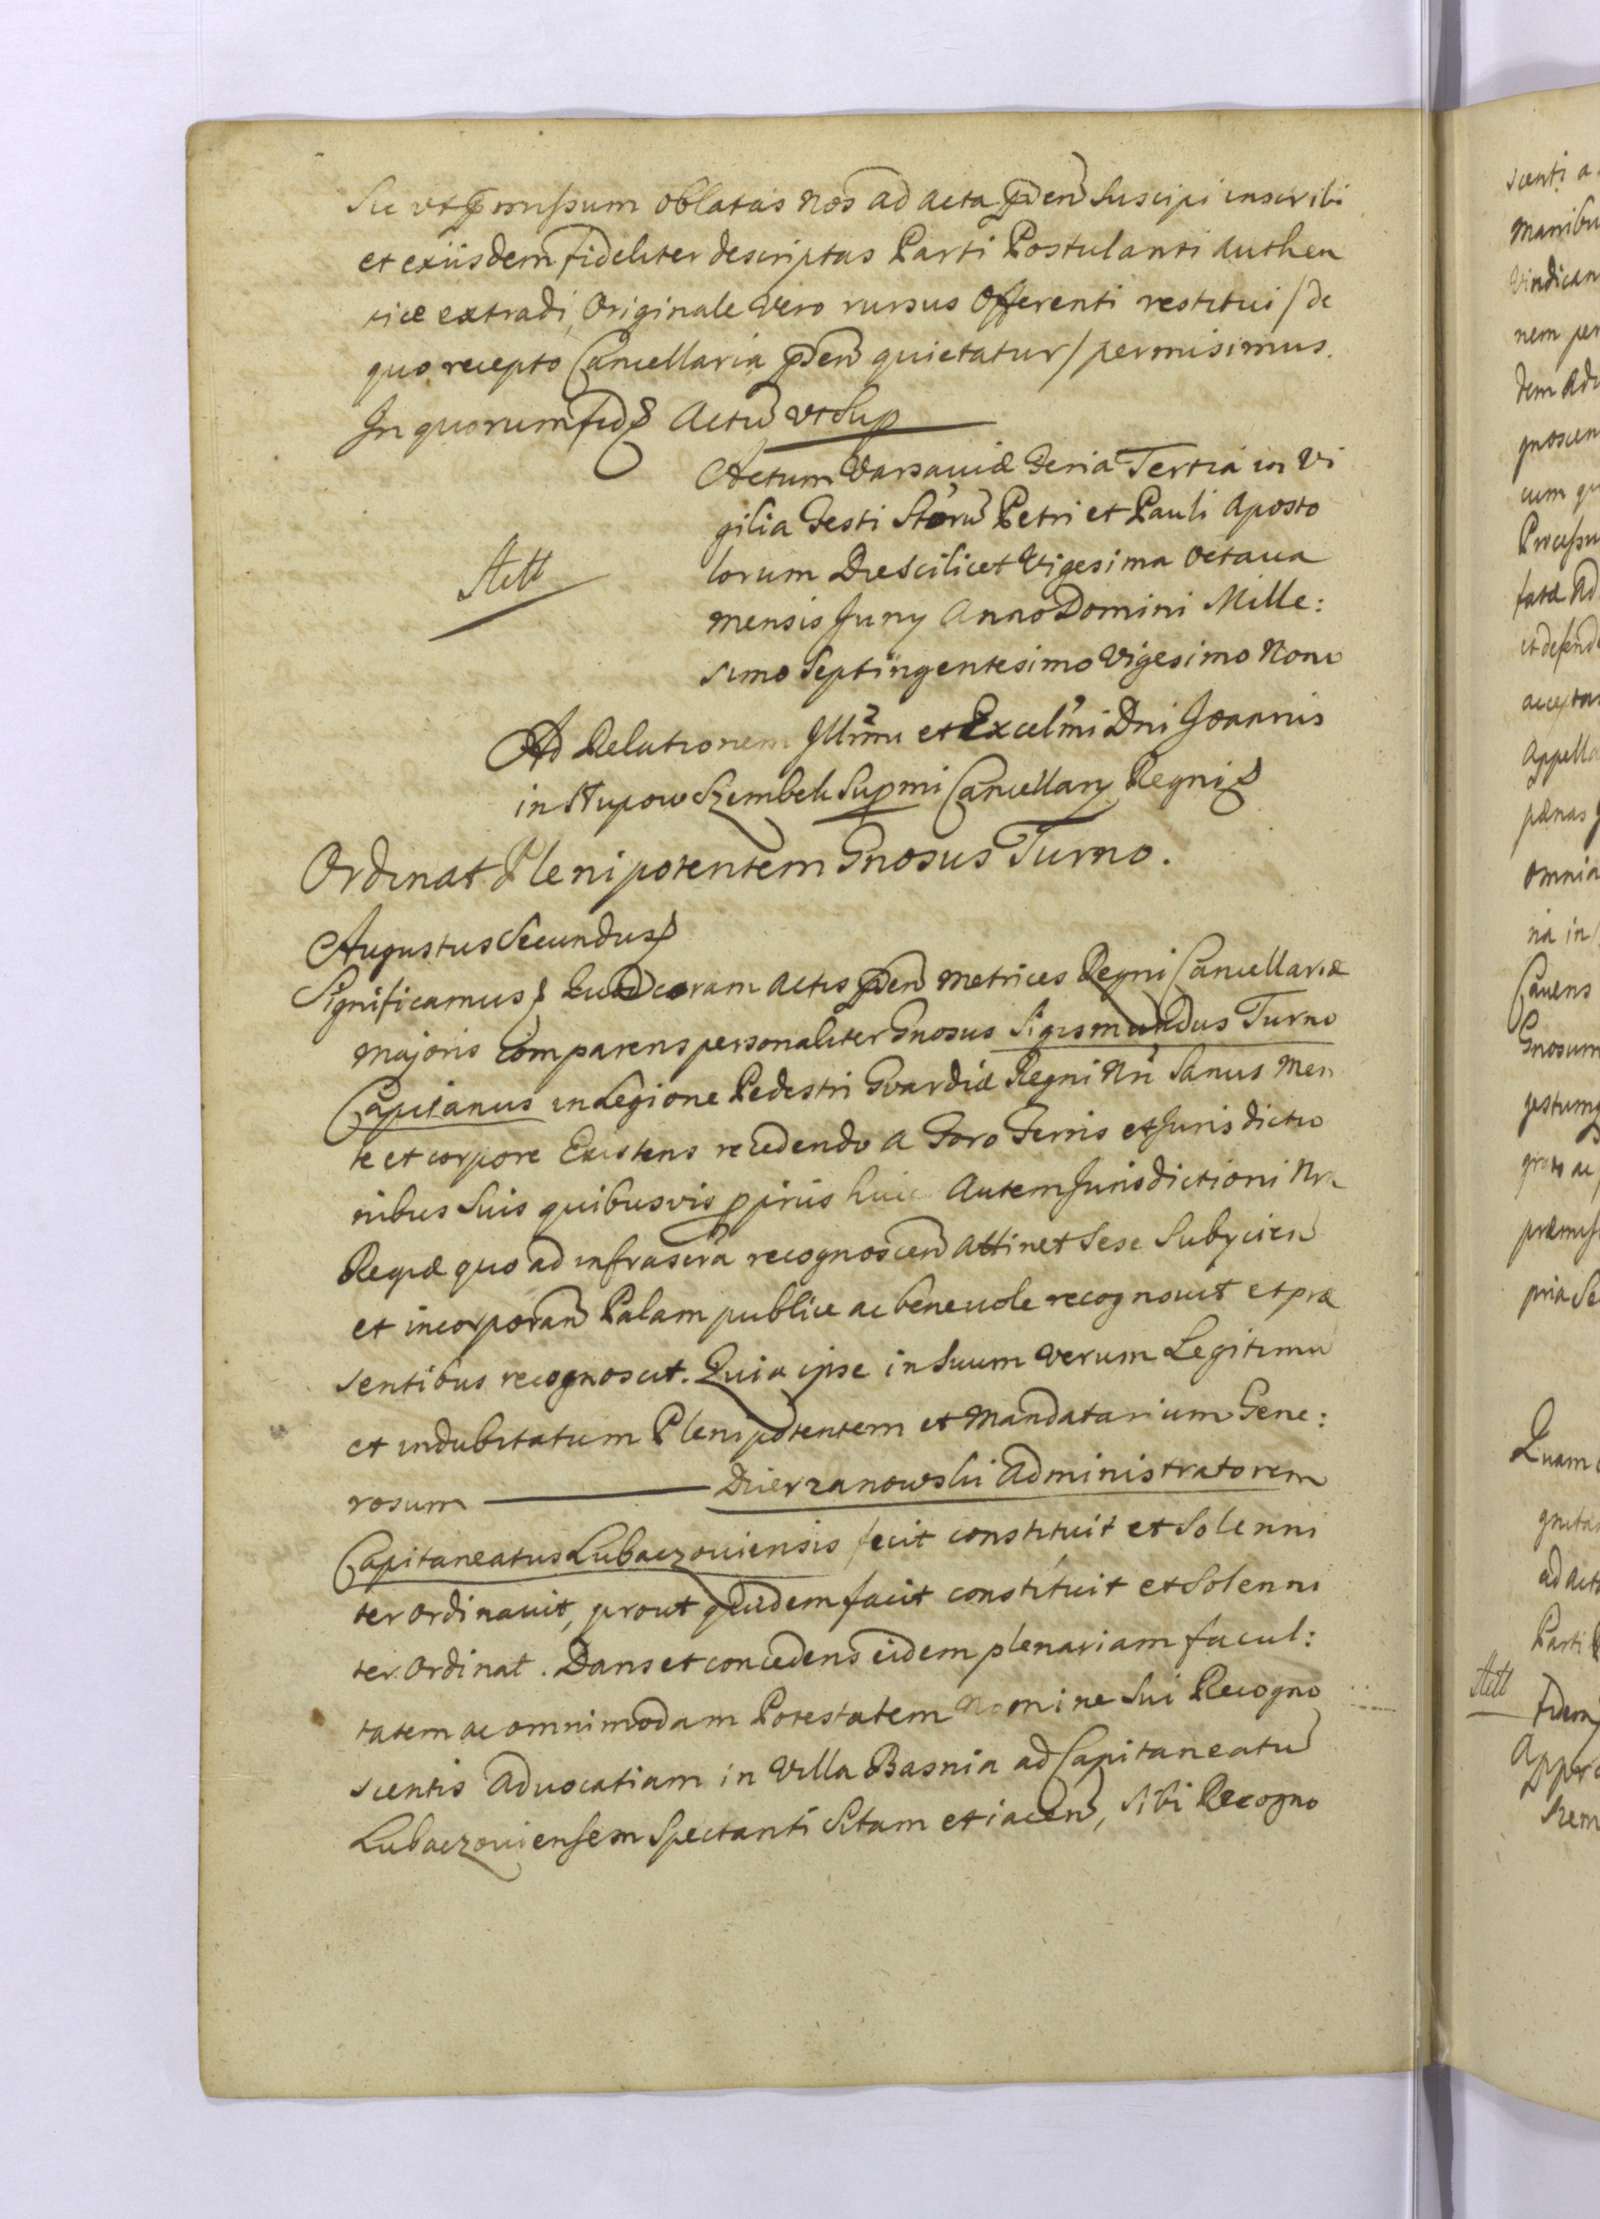 Sic ut p̃missum oblatas nos ad acta p̃en̄ suscipi inscribi
et ex iisdem fideliter descriptas Parti Postulanti authen
tice extradi, Originale vero rursus Offerenti restitui / de
quo recepto Cancellaria p̃en̄ quietatur / permisimus.
In quorum fid Actū ut sup
Actum Varsaviæ Feria Tertia in Vi
gilia Festi Storū Petri et Pauli Aposto
lorum Die Scilicet Vigesima Octava
Stett
mensis Juny Anno Domini Mille:
simo Septingentesimo Vigesimo Nono
Ad Relationem Illr̃mi et Excel'mi Dni Joannis
in Słupow Szembek Supmi Cancellary Regni
Ordinat Plenipotentem Gnosus Turno.
Augustus Secundus
Significamus Quod coram Actis p̃en̄ Metrices Regni Cancellariæ
Majoris Comparens personaliter Gnosus Sigismundus Turno
Capitanus in Legione Pedestri Gvardiæ Regni Nri Sanus Men
te et corpore Existens recedendo a Foro Terris et Jurisdictio
nibus Suis quibusvis ppriis huic Autem Jurisdictioni Nræ
Regiæ quo ad infrascra recognoscen̄ attinet sese Subycien̄
et incorporan̄ Palam publice ac benevole recognovit et præ
sentibus recognoscit. Quia ipse in Suum verum Legitimū
et indubitatum Plenipotentem et Mandatarium Gene:
rosum ——— Dzierzanowski Administratorem
Capitaneatus Lubaczoviensis fecit constituit et Solenni
ter Ordinavit, prout quidem facit constituit et Solenni
ter Ordinat. Dans et concedens eidem plenariam facul:
tatem ac omnimodam Potestatem Nomine Sui Recogno
scentis Advocatiam in Villa Basnia ad Capitaneatū
Lubaczoviensem Spectanti Sitam et iacen̄, Sibi Recogno
scenti a
Manibu
Vindican
nem per
dem Adv
gnoscen
cum qu
Processu
fatæ Ad
et defend
acceptas
Appella
pænas
omnia
ria in
Cavens
Gnosum
gestumq
grato ac
præmiss
pria Se
Quam
gnitam
ad acta
Parti
Stett
Fidem
Szem